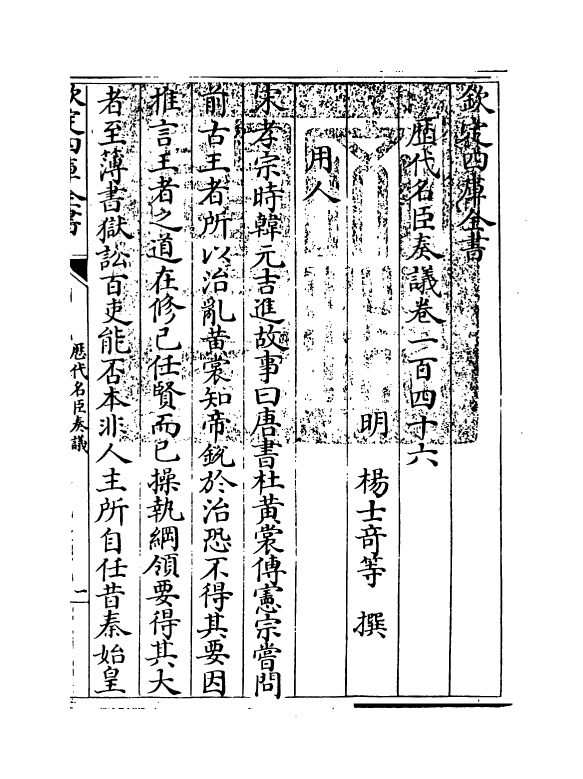 欽定四庫全書
歴代名臣奏議卷一百四十六
明　楊士奇等　撰
用人
宋孝宗時韓元吉進故事曰唐書杜黄裳傳憲宗嘗問
前古王者所以治亂黄裳知帝鋭於治恐不得其要因
推言王者之道在修己任賢而已操執綱領要得其大
者至薄書獄訟百吏能否本非人主所自任昔秦始皇
欽定四庫全書
歴代名臣奏議
一